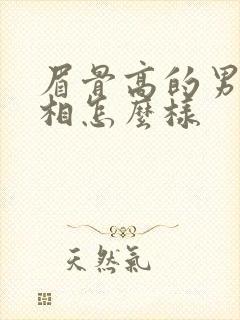 眉骨高的男
相怎麼樣
天然氣